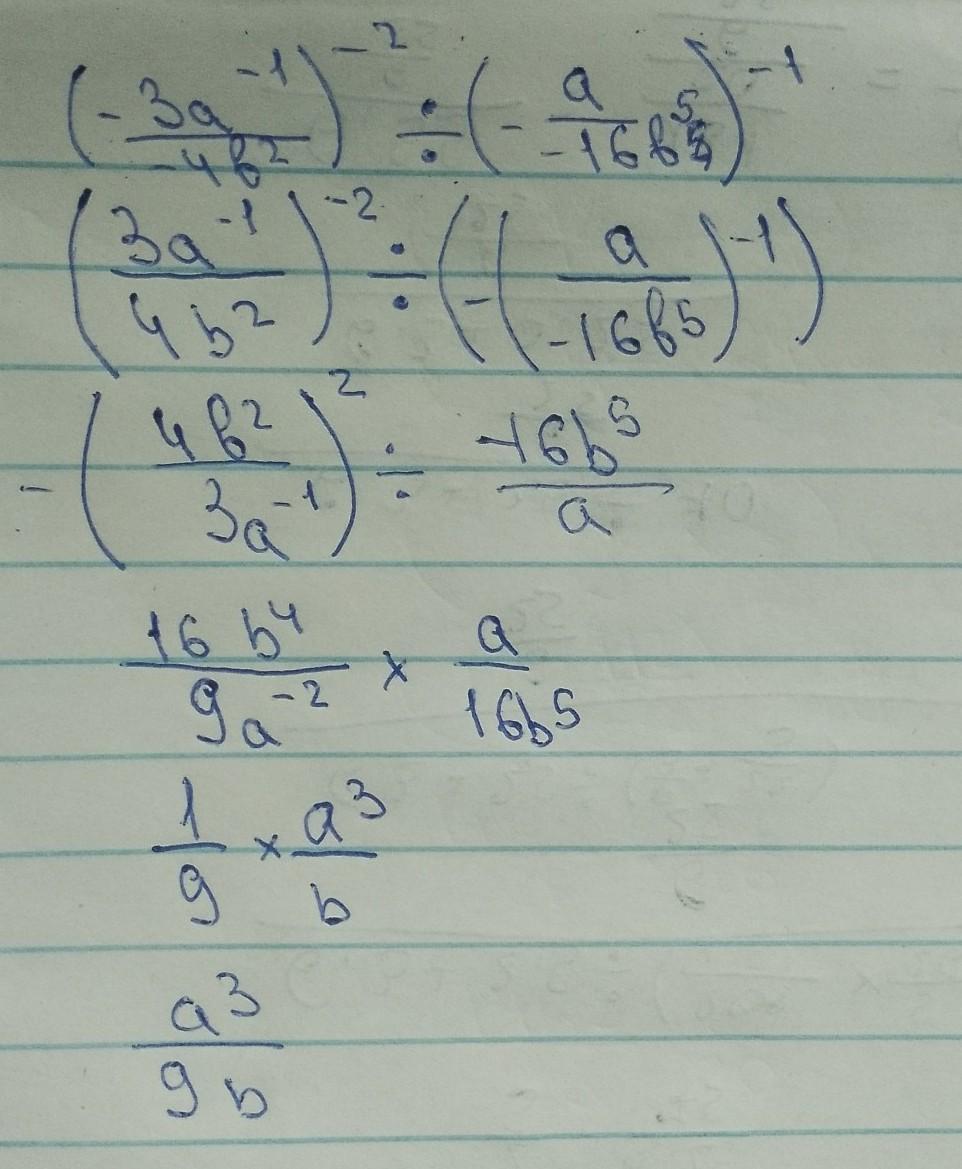 (-3a^-1/-4b^2)^-2 ÷ (-a/-16b^5)^-1
(3a^-1/4b^2)^-2 ÷ (-(a/-16b^5)^-1)
-(4b^2/3a^-1)^2 ÷ -16b^5/a
16b^4/9a^-2 × a/16b^5
1/9 × a^3/b
a^3/9b